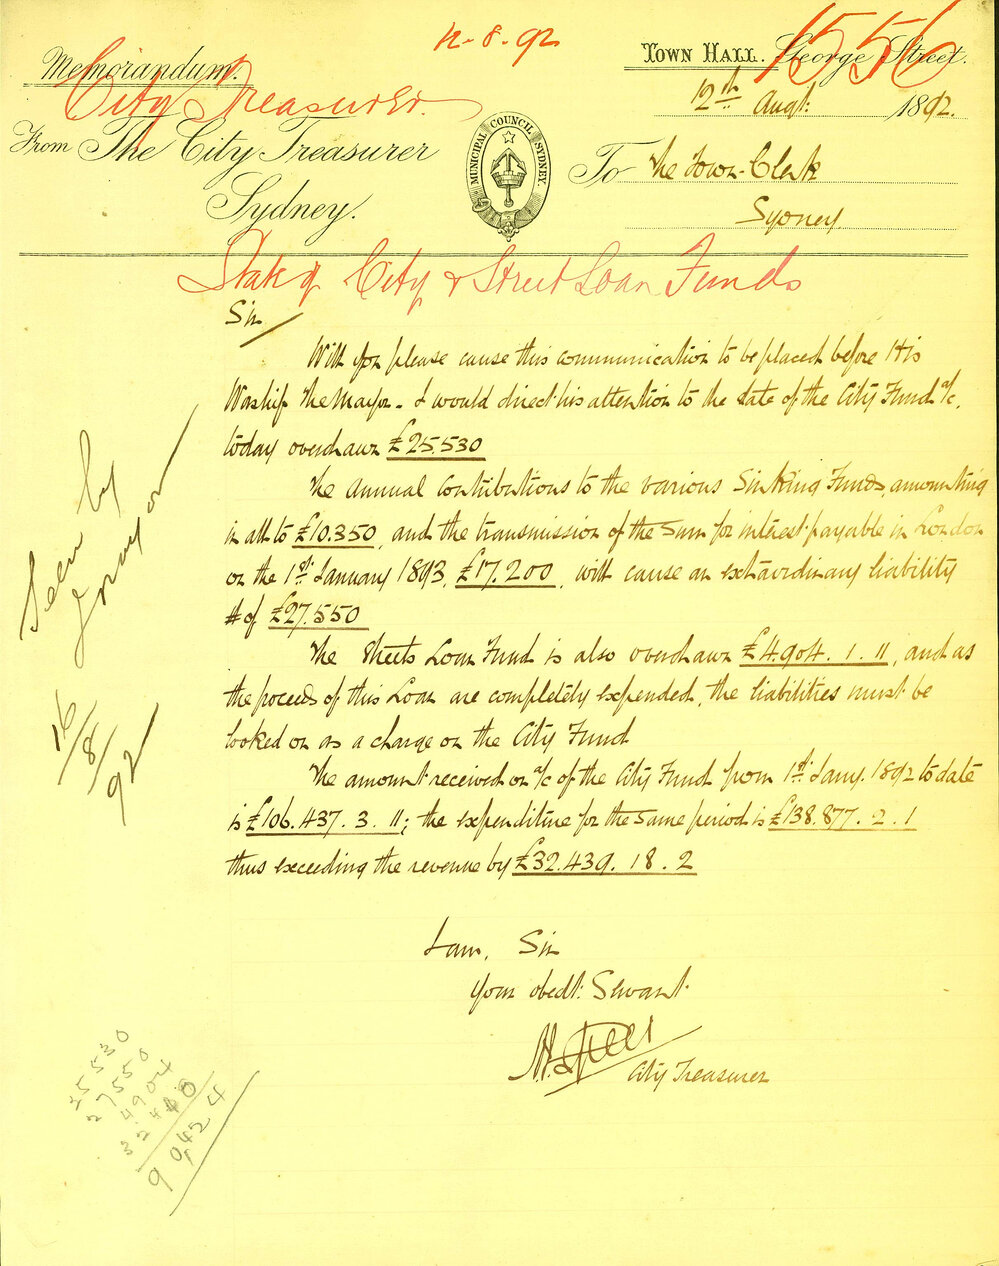 12-8-92
1556
Memorandum.
City Treasurer.
From The City Treasurer
Sydney.
MUNICIPAL COUNCIL SYDNEY.
TOWN HALL. George Street.
12th Augt. 1892.
To The Town Clerk
Sydney
State of City & Street Loan Funds
Sir
Will you please cause this communication to be placed before His
Worship the Mayor - I would direct his attention to the state of the City Fund a/c,
today overdrawn £25.530
The annual contributions to the various Sinking Funds, amounting
in all to £10.350, and the transmission of the sum for interest payable in London
on the 1st January 1893, £17.200, will cause an extraordinary liability
of £27.550
The Streets Loan Fund is also overdrawn £4904. 1. 11, and as
the proceeds of this Loan are completely expended, the liabilities must be
looked on as a charge on the City Fund
The amount received on a/c of the City Fund from 1st Jany. 1892 to date
is £106.437. 3. 11; the expenditure for the same period is £138.877. 2. 1
thus exceeding the revenue by £32.439. 18. 2
I am, Sir
Your obedt. Servant
City Treasurer
Seen by
Mayor
16/8/92
25530
27550
4904
32440
90424